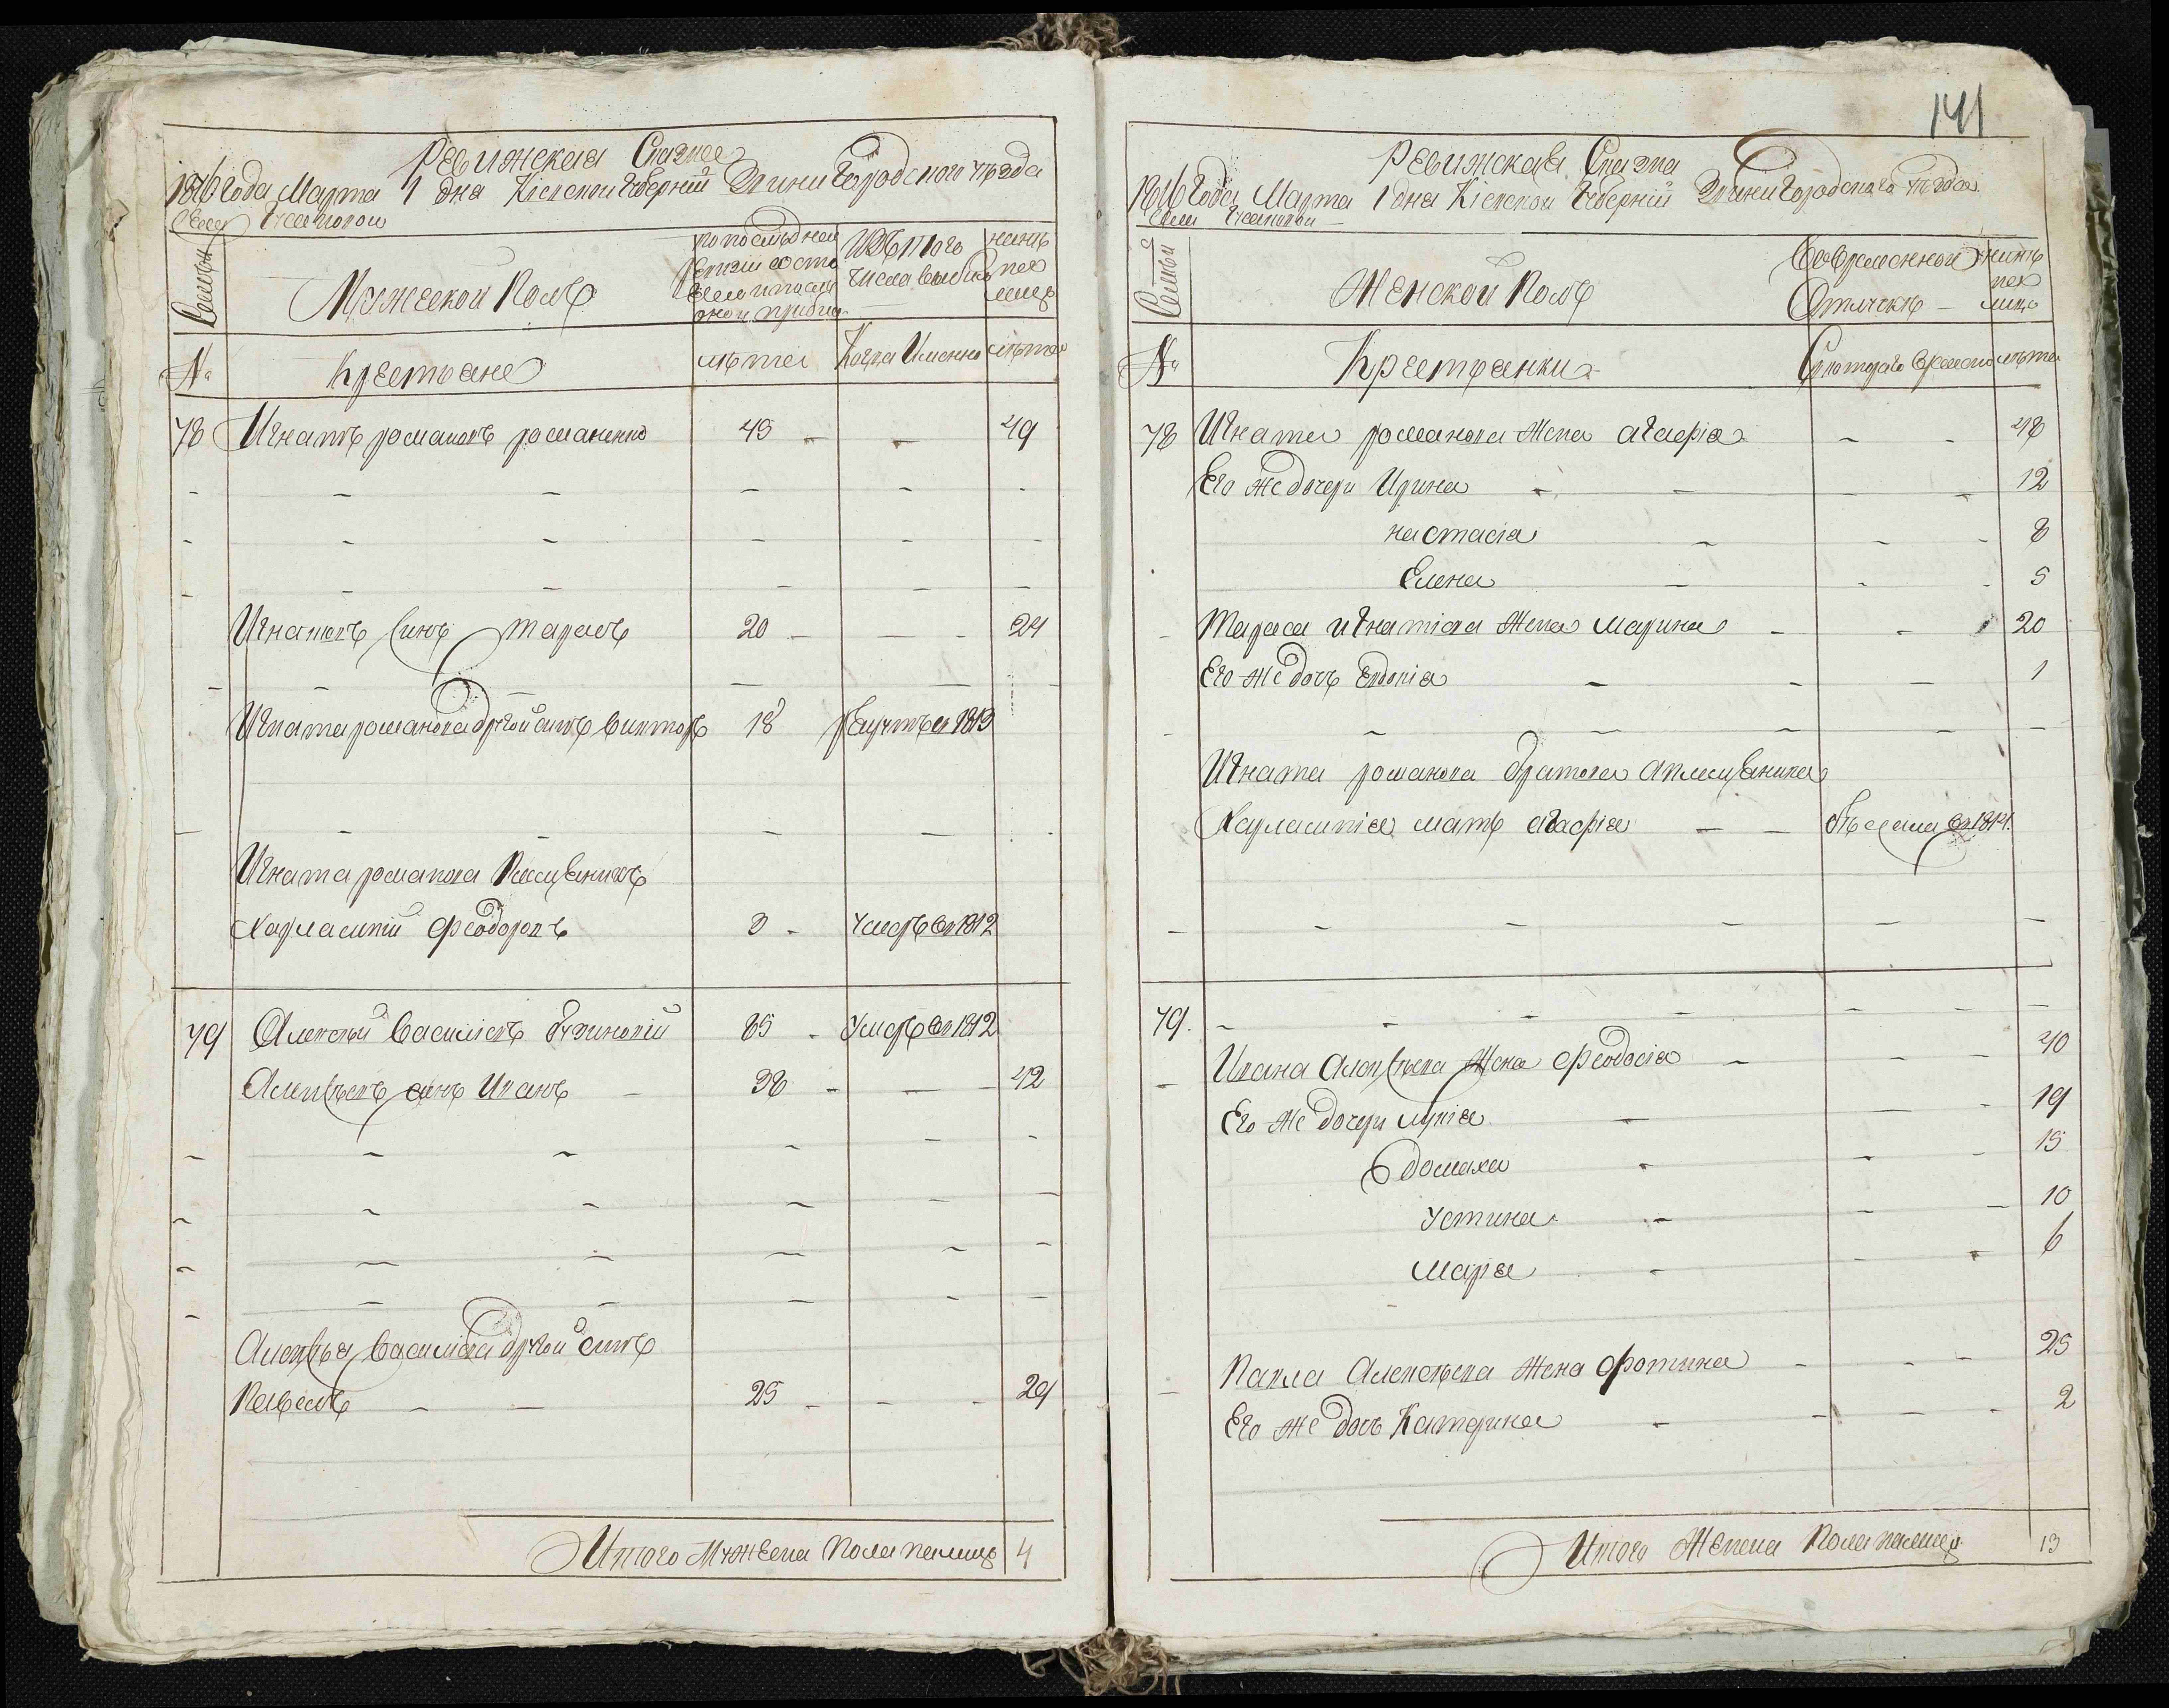 Ревижская Сказка
1816 года Марта 1 дня Кіевской губерніи Звинигородского уѣзда
Села
Семьи
Мужеской Полъ
по последней ревизіи состояло и после оной прибыло
Изъ того числа выбыло
нынѣ на лицо
№
Крестьяне
лѣта
Когда Именно
лѣта
78 Игнатъ романовъ романенко 45 - - 49
Игнатовъ Синъ тарасъ 20 - - 24
Игната романова другой синъ викторъ 18 рекрутъ въ 1813
Игната романова Племѣнникъ
Харлампій Феодоровъ 3 - Умеръ въ 1812
79 Алексѣй Василіевъ 65 - Умеръ въ 1812
Алексѣевъ синъ Иванъ - 38 - - 42
Алексѣя Василіева другой синъ
Павелъ - - 25 - - - 29
Итого Мужеска Пола на лицо 4
141
Ревижская Сказка
1816 года Марта 1 дня Кіевской Губерніи Звинигородскаго уѣзда
Села
Семьи
Женской Полъ
Во временной Отлучкѣ
нынѣ на лицо
№
Крестьянки
С котораго времени
лѣта
78 Игната романова Жена агафія - - 48
Его же дочери Ирина - - - - 12
настасія - - - 8
Елена - - - 5
- Тараса игнатіева Жена марина - - 20
Его же дочь Евдокія - - - 1
Игната романова братова племѣнника
Харлампія мать агафія - - бѣжала въ 1814.
79.
- Ивана Алексѣева Жена Феодосія - - - 40
Его же дочери - - - 19
домаха - - - 15
Устина - - - 10
марія - - - 6
- Павла Алексѣева Жена Фотина - - - 25
Его же дочь Катерина - - - - 2
Итого Женска Пола на лицо 13